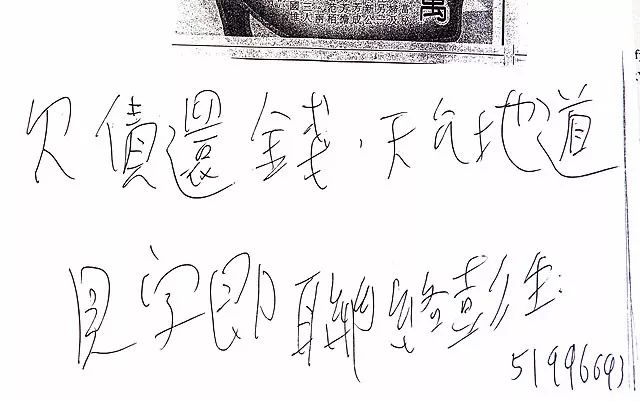 萬
欠債還錢，天公地道
見字即聯絡彭生:
51996693